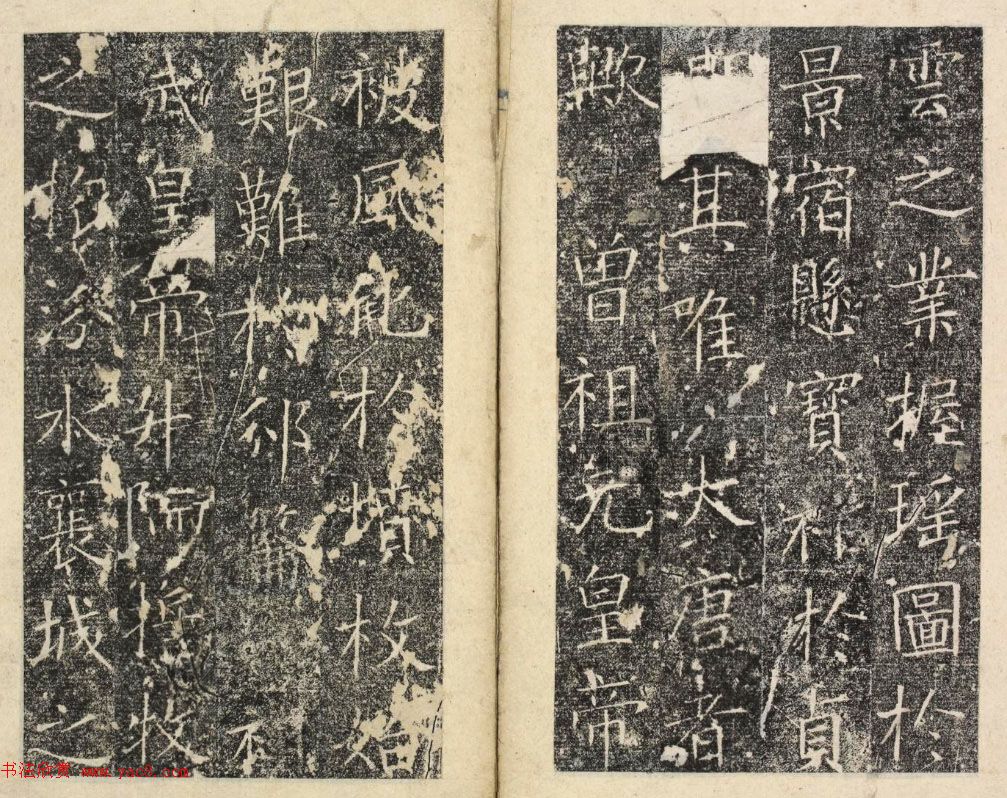 雲之業握瑶圖於
景宿懸寶祚於貞
其唯大唐者
歟曾祖光皇帝
被風能於墳枚
艱難於祁
武皇帝升陑杖牧
之水襄城之
书法欣赏 www.yac8.com